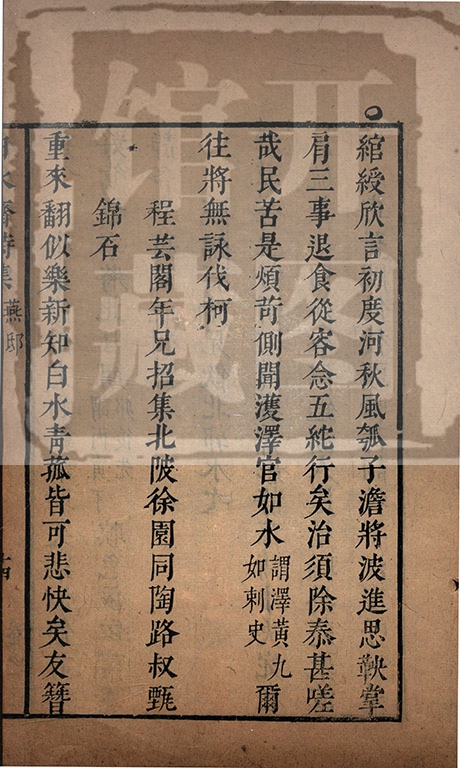 綰綬欣言初度河秋風瓠子澹將波進思鞅掌
肩三事退食從容念五紽行矣治須除泰甚嗟
哉民苦是煩苛側聞濩澤官如水謂澤黃九爾如刺史
往將無詠伐柯
程芸閣年兄招集北陂徐園同陶路叔甄
錦石
重來翻似樂新知白水青菰皆可悲快矣友簪
齋詩集 燕邸
十四
开图
馆藏